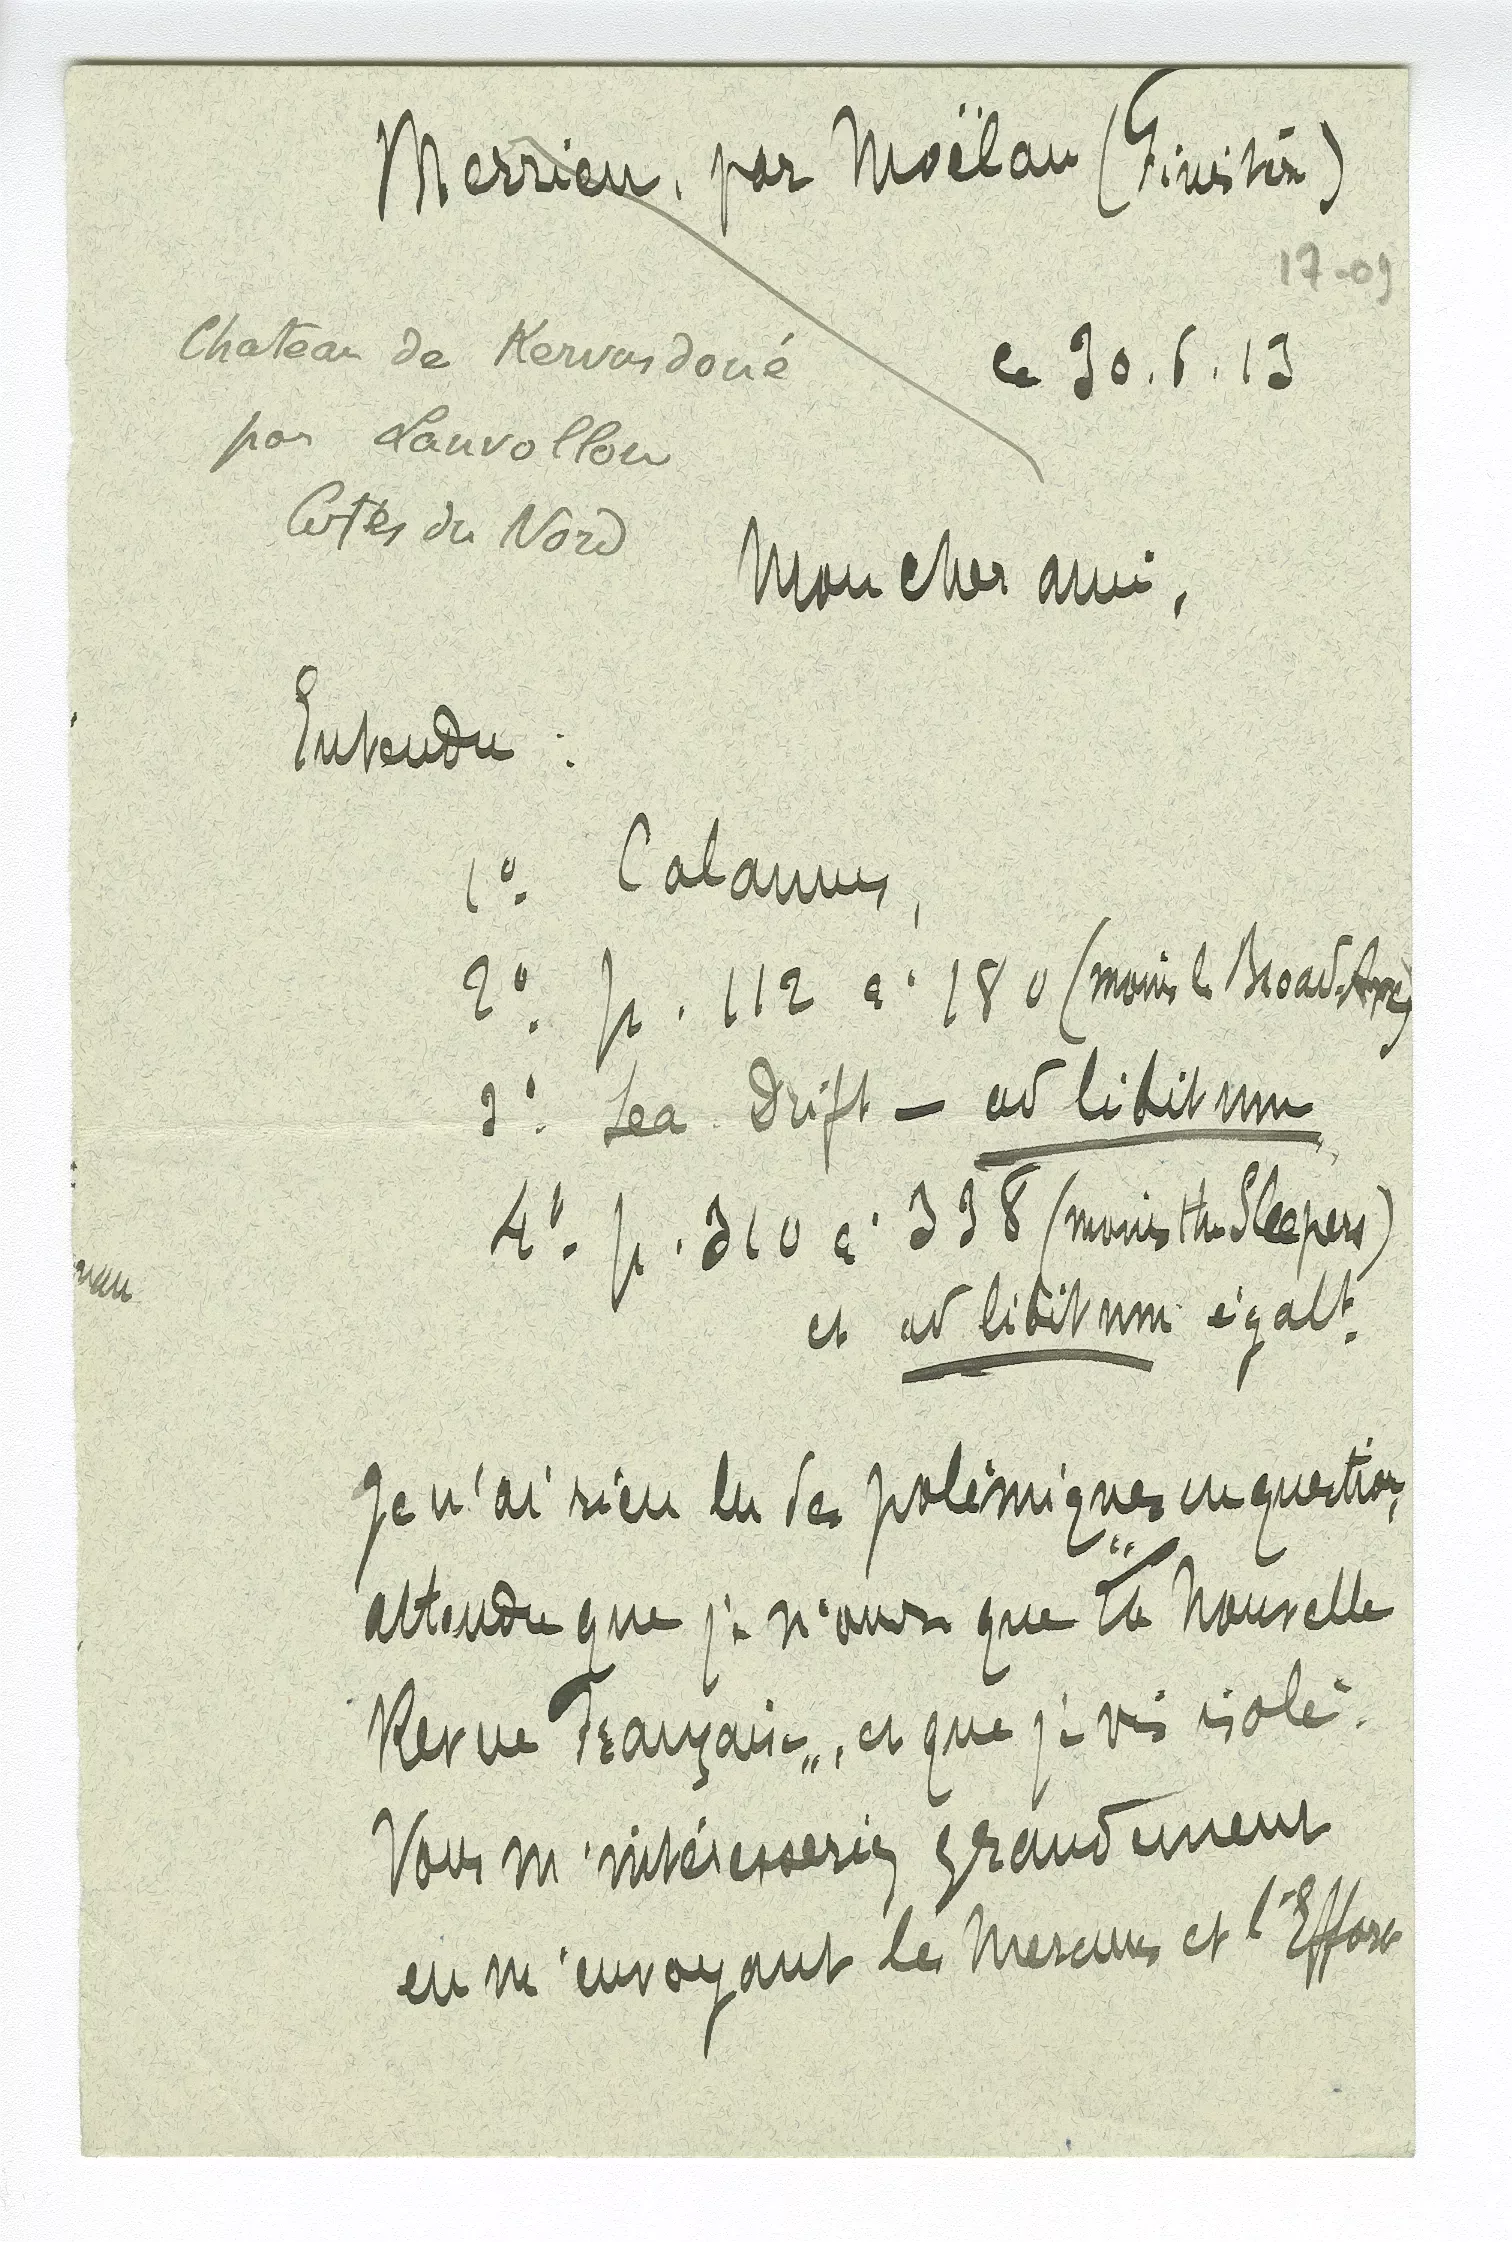 Merrien, par Moëlan (Finistère)
17-09
Chateau de Kervasdoué
par Lanvollon
Côtes du Nord
ce 30.6.13
Mon cher ami,
Entendu :
1º. Calamus,
2º. p. 112 à 180 (moins le Broad-Axe)
3º. Sea Drift — ad libitum
4º. p. 310 à 338 (moins the Sleepers)
et ad libitum égalt.
Je n'ai rien lu des polémiques en question,
attendu que je n'ouvre que "la Nouvelle
Revue Française", et que je vis isolé.
Vous m'intéresseriez grandement
en m'envoyant les Mercures et l'Effort